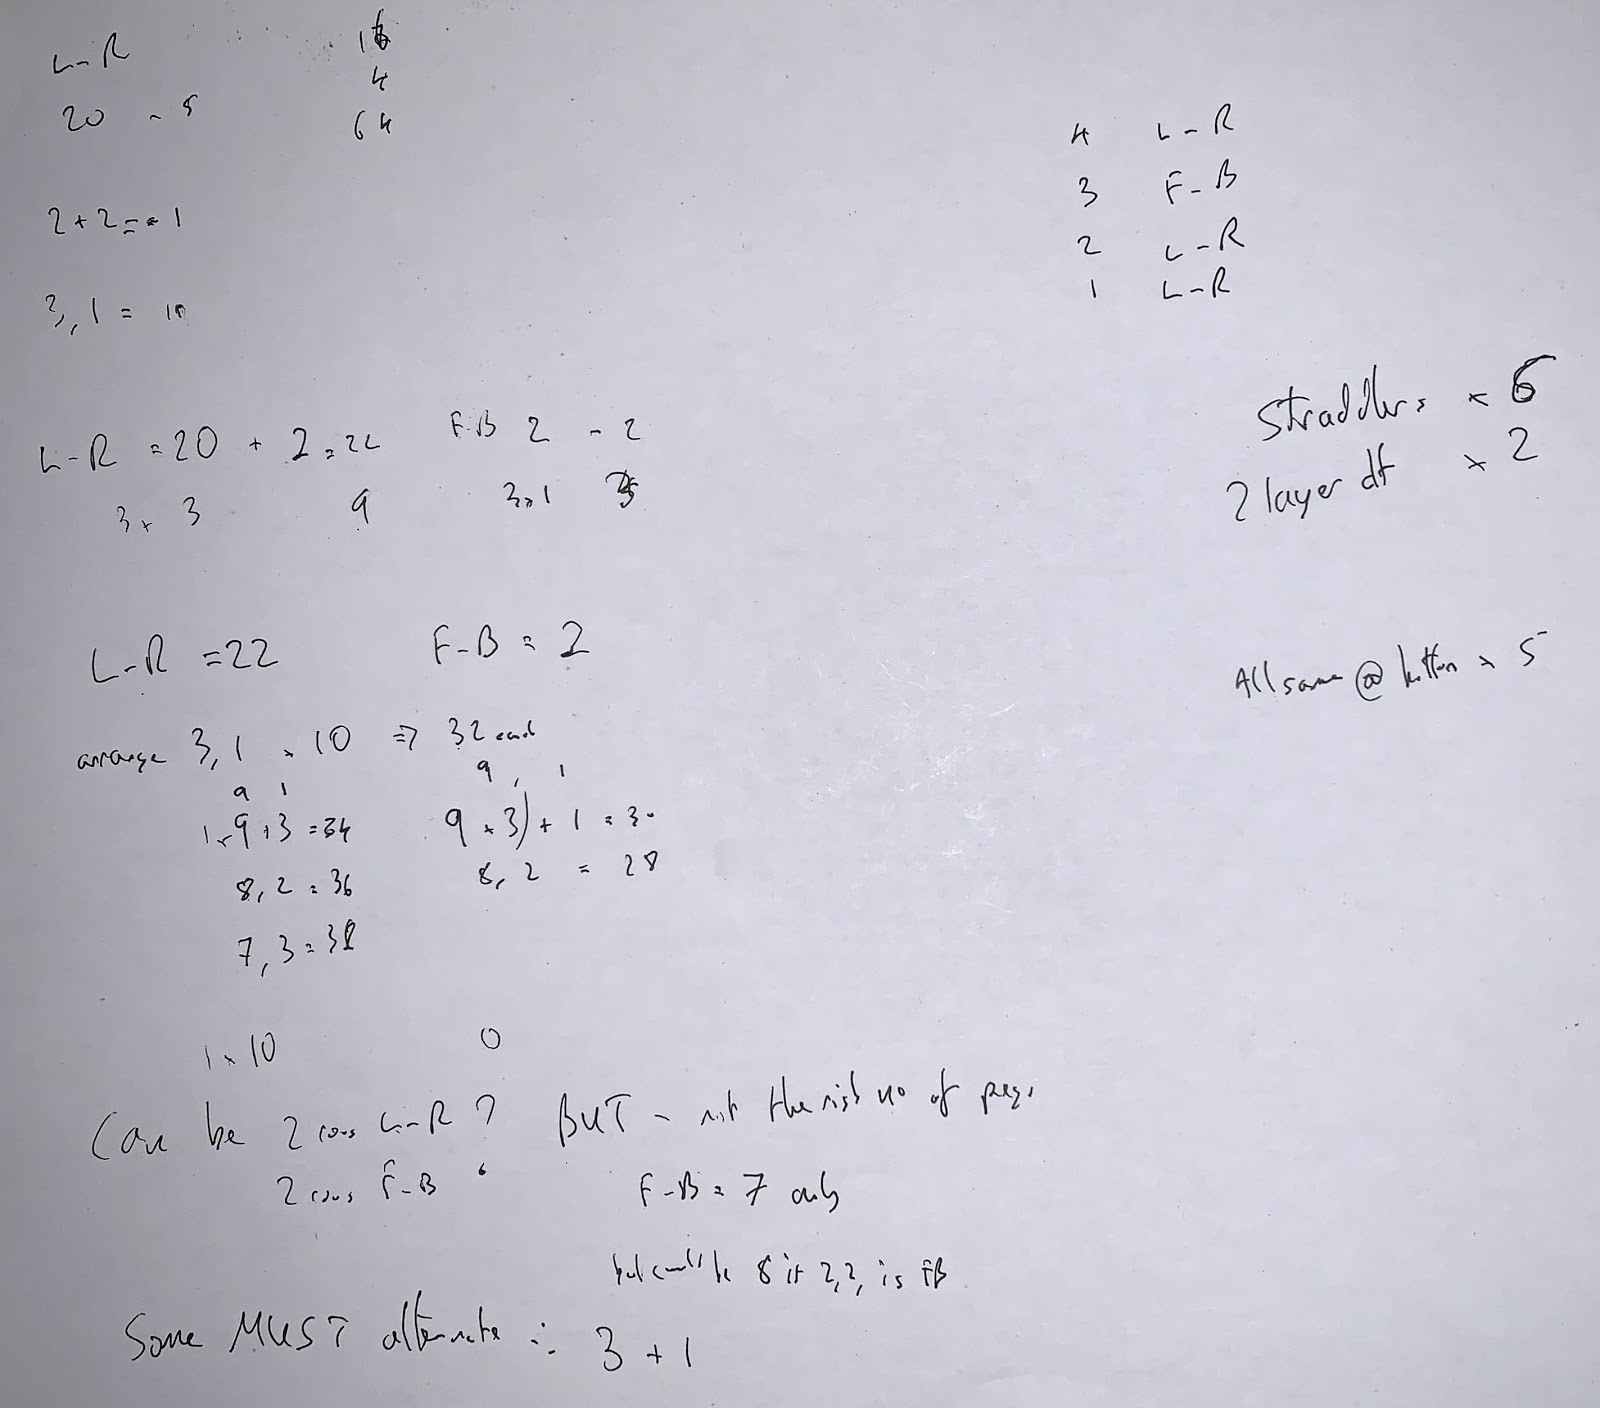 L-R
20 - 5
16
4
64
2+2 = 1
3, 1 = 10
4 L-R
3 F-B
2 L-R
1 L-R
L-R = 20 + 2 = 22 F-B 2 - 2
3 x 3 9 3x1
Straddlers x 6
2 layer df x 2
L-R = 22 F-B = 2
All same @ bottom x 5
arrange 3, 1 x 10 => 32 each
9 1 9, 1
1x9+3 = 34 9 x 3) + 1 = 30
8, 2 = 36 8, 2 = 28
7, 3 = 38
1 x 10 0
Can be 2 rows L-R? BUT - not the right no of pegs.
2 rows F-B F-B = 7 only
but could be 8 if 2,2, is FB
Some MUST alternate ∴ 3 + 1